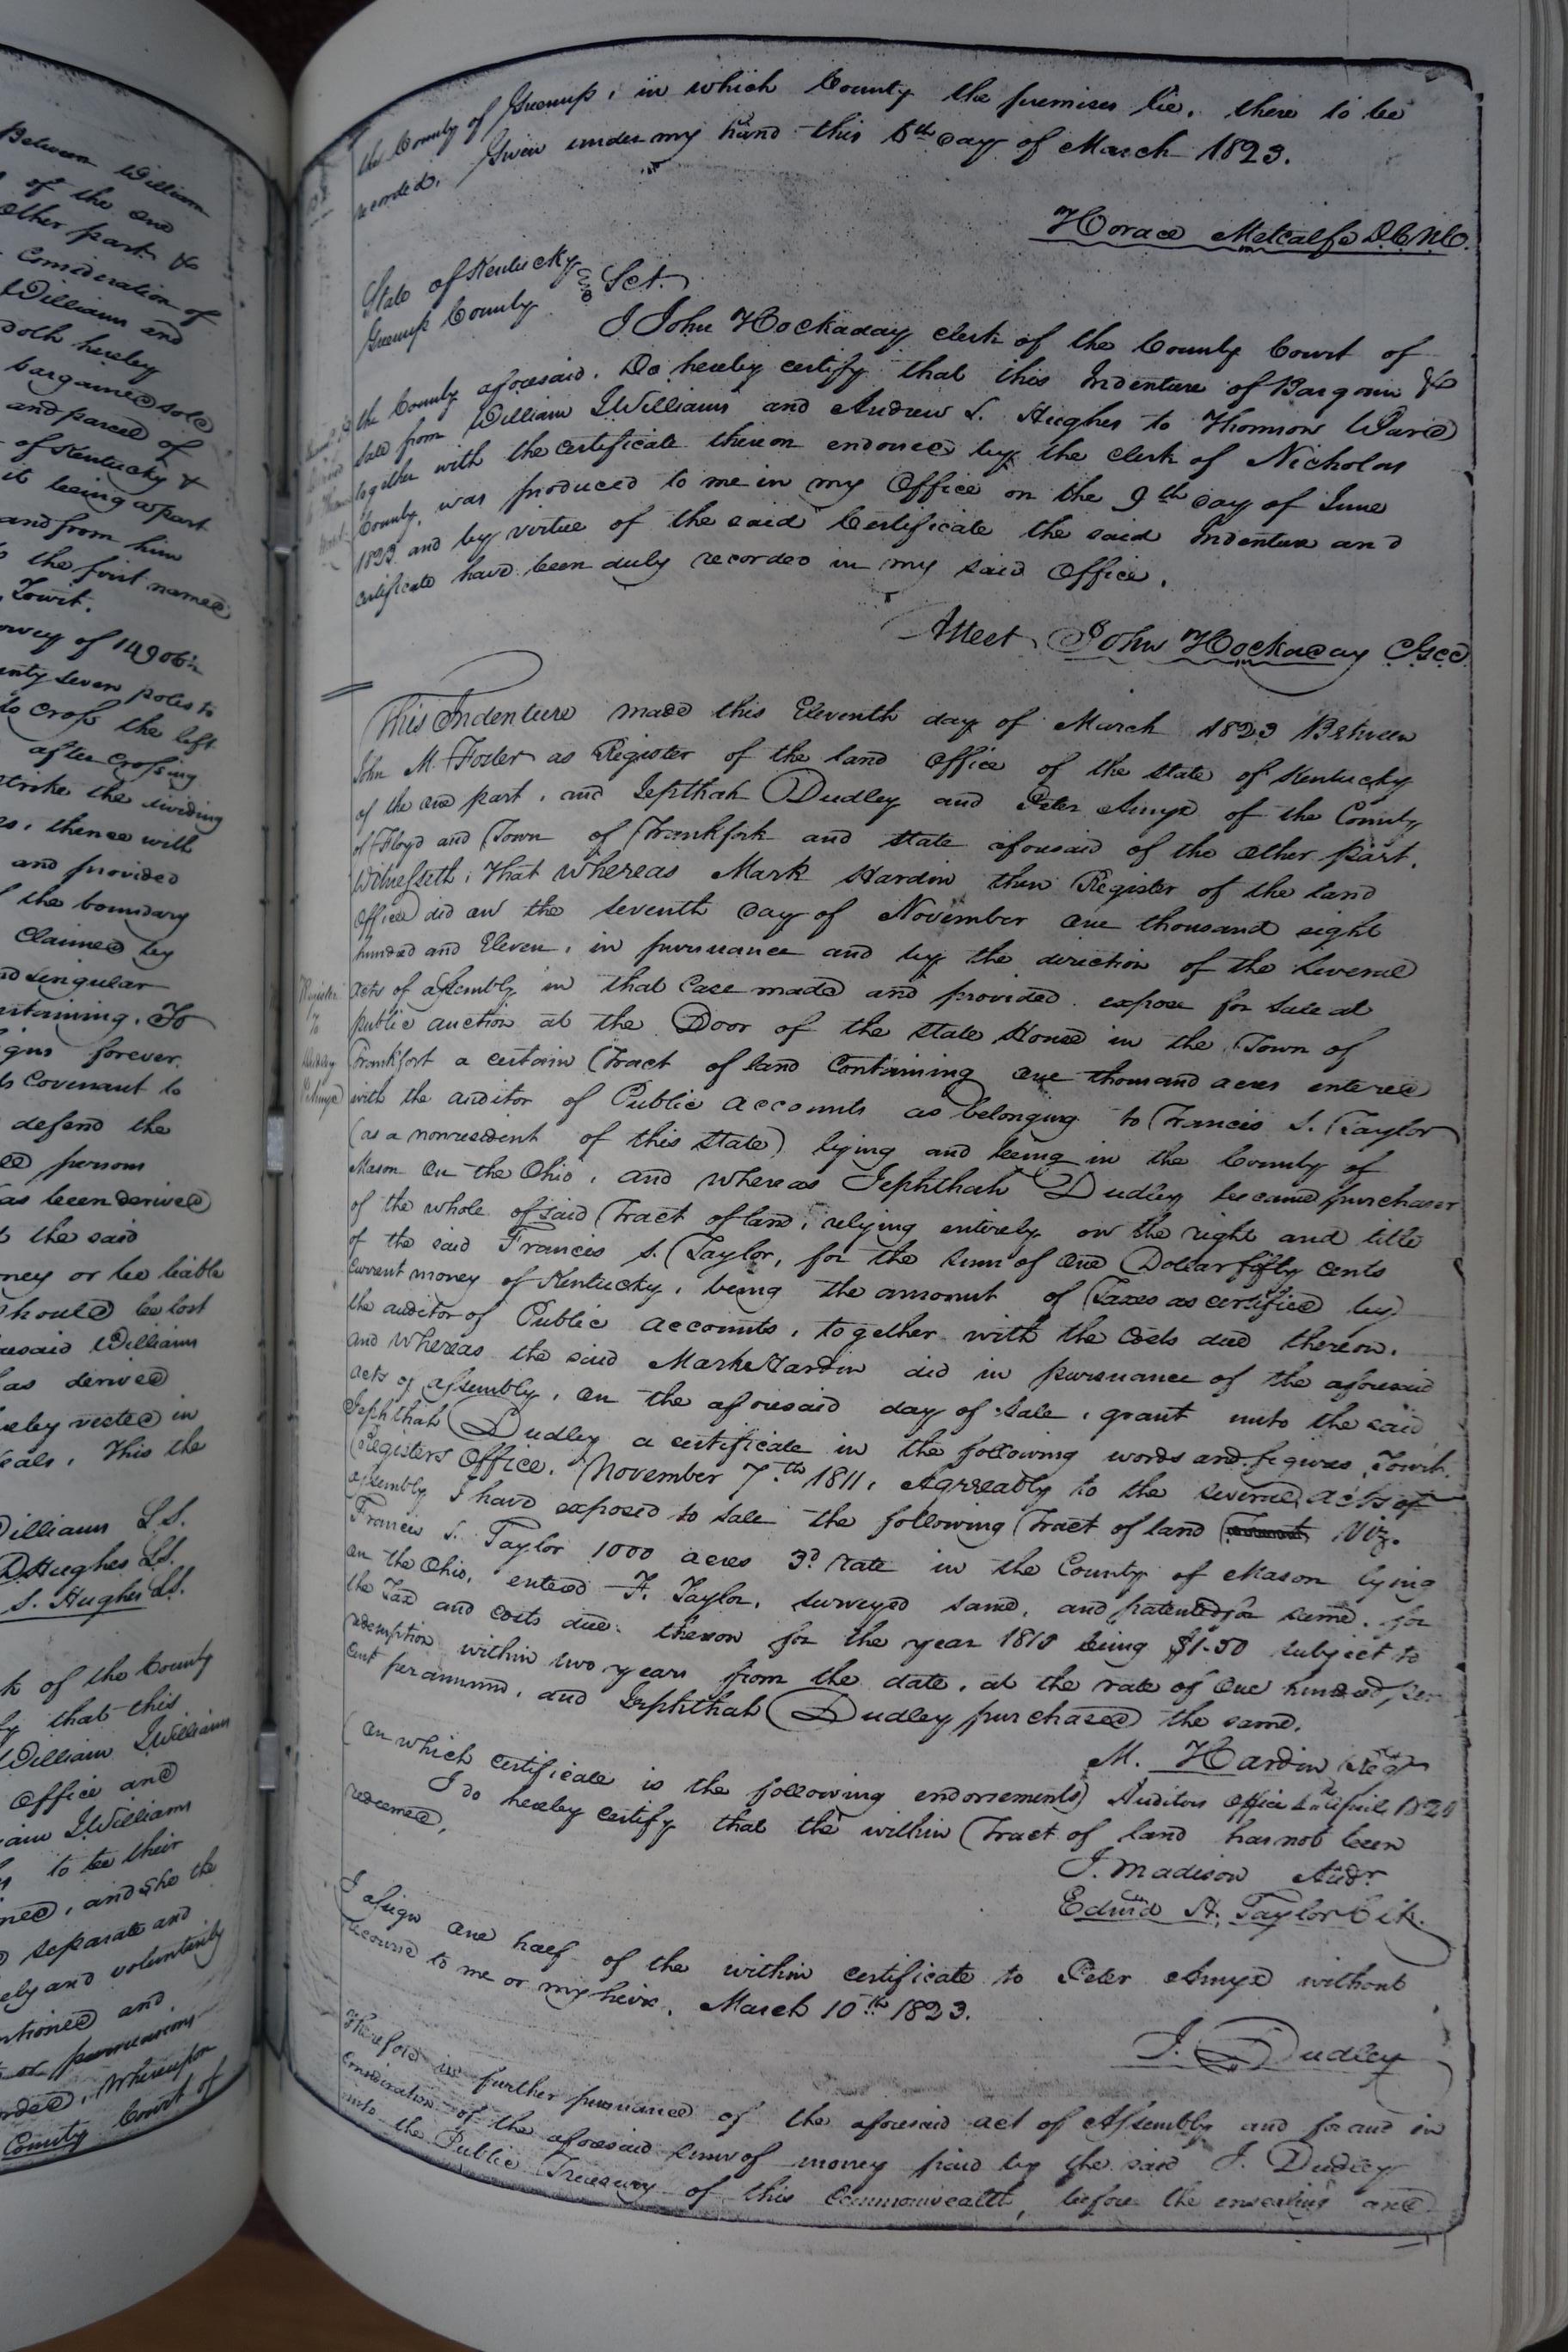 Between William
of the one
other part &
Consideration of
Williams and
doth hereby
bargained sold
and parcel of
of Kentucky &
it being a part
and from him
the first named
Towit.
of 1490
seven poles to
to cross the left
after crossing
strike the
thence with
and provided
the boundary
Claimed by
singular
To
forever.
Covenant to
defend the
person
as been derived
the said
or be liable
should be lost
William
as derived
vested in
This the
Williams L.S.
D Hughes L.S.
S. Hughes L.S.
of the County
that this
William Williams
office and
Williams
to be their
and she the
separate and
and voluntarily
and
or persuasions
Whereupon
County Court of
the County of Greenup, in which County the premises lie, there to be
recorded. Given under my hand this 5th day of March 1823.
Horace Metcalfe D.C.N.C.
State of Kentucky
Greenup County Sct.
I John Hockaday clerk of the County Court of
the County aforesaid. Do hereby certify that this Indenture of Bargain &
Sale from William Williams and Andrew S. Hughes to Thomson Ward
together with the certificate thereon endorsed by the clerk of Nicholas
County, was produced to me in my Office on the 9th day of June
1823 and by virtue of the said Certificate the said Indenture and
certificate have been duly recorded in my said Office.
Attest John Hockaday Gcc
This Indenture made this Eleventh day of March 1823 Between
John M. Foster as Register of the land Office of the State of Kentucky
of the one part, and Jepthah Dudley and Peter Amyx of the County
of Floyd and Town of Frankfort and State aforesaid of the other part.
Witnesseth, That Whereas Mark Hardin then Register of the land
office did on the seventh day of November one thousand eight
hundred and Eleven, in pursuance and by the direction of the several
acts of assembly in that Case made and provided expose for sale at
public auction at the Door of the State House in the Town of
Frankfort a certain Tract of land Containing one thousand acres entered
with the auditor of Public accounts as belonging to Francis S. Taylor
(as a nonresident of this State) lying and being in the County of
Mason on the Ohio, and whereas Jephthah Dudley became purchaser
of the whole of said Tract of land, relying entirely on the right and title
of the said Francis S. Taylor, for the sum of one Dollar fifty cents
current money of Kentucky, being the amount of Taxes as certified by
the auditor of Public accounts, together with the costs due thereon.
and Whereas the said Mark Hardin did in pursuance of the aforesaid
acts of assembly, on the aforesaid day of sale, grant unto the said
Jephthah Dudley a certificate in the following words and figures, Towit.
Registers Office, November 7th 1811, Agreeably to the several acts of
assembly I have exposed to sale the following Tract of land Viz.
Francis S. Taylor 1000 acres 3d rate in the County of Mason lying
on the Ohio, entered F. Taylor, surveyed same, and patented for same, for
the Tax and costs due thereon for the year 1810 being $1.50 subject to
redemption within two years from the date, at the rate of one hundred per
cent per annum, and Jephthah Dudley purchased the same.
M. Hardin Regr
(on which certificate is the following endorsements) Auditors office April
I do hereby certify that the within Tract of land has not been
redeemed.
J. Madison Audr.
Edmd H. Taylor Clk.
I assign one half of the within certificate to Peter Amyx without
recourse to me or my heirs, March 10th 1823.
J. Dudley
Therefore in further pursuance of the aforesaid act of Assembly and for and in
consideration of the aforesaid sum of money paid by the said J. Dudley
into the Public Treasury of this Commonwealth, before the ensealing and